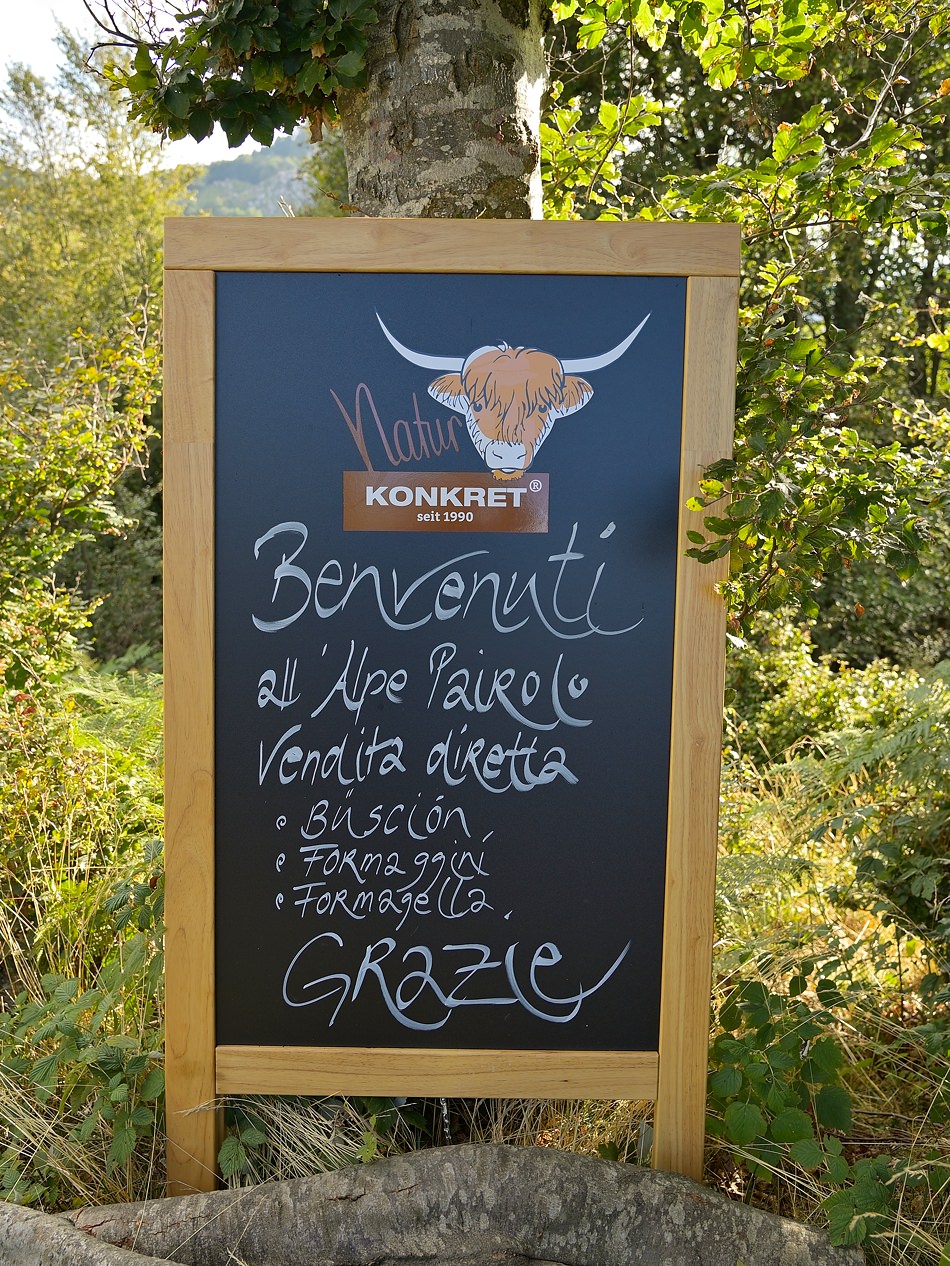 Natur
KONKRET®
seit 1990
Benvenuti
all'Alpe Pairolo
Vendita diretta
• Büsción
• Formaggini
• Formagella.
Grazie